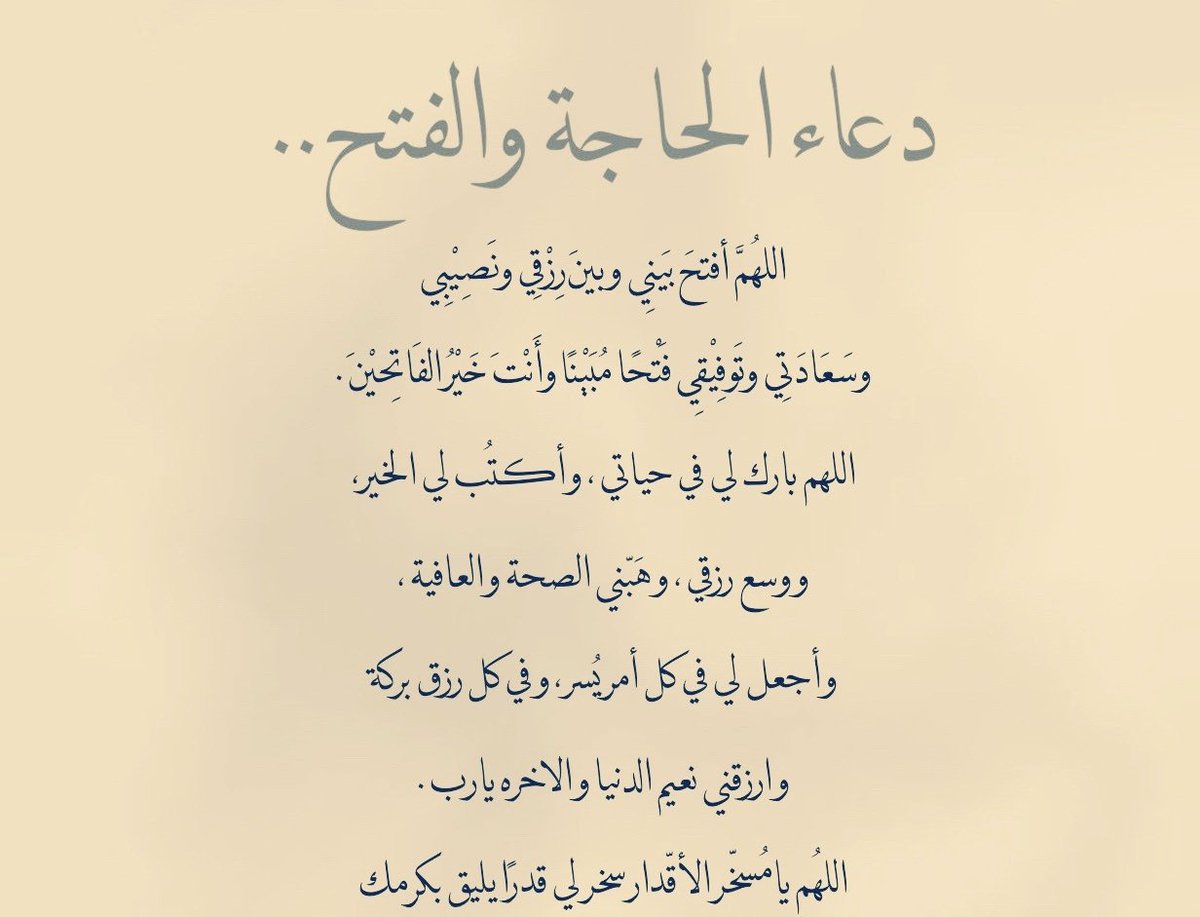 دعاء الحاجة والفتح..
اللهُمَّ أفتحَ بَيَنِي وبينَ رِزْقِي ونَصِيْبِي
وسَعَادَتِي وتَوفِيْقِي فَتْحًا مُبَيْنًا وأَنْتَ خَيْرُ الفَاتِحِيْنَ.
اللهم بارك لي في حياتي ، وأكتُب لي الخير،
ووسع رزقي ، وهَبّني الصحة والعافية ،
وأجعل لي في كل أمر يُسر، وفي كل رزق بركة
وارزقني نعيم الدنيا والاخره يارب .
اللهُم يا مُسخّر الأقّدار سخر لي قدرًا يليق بكرمك